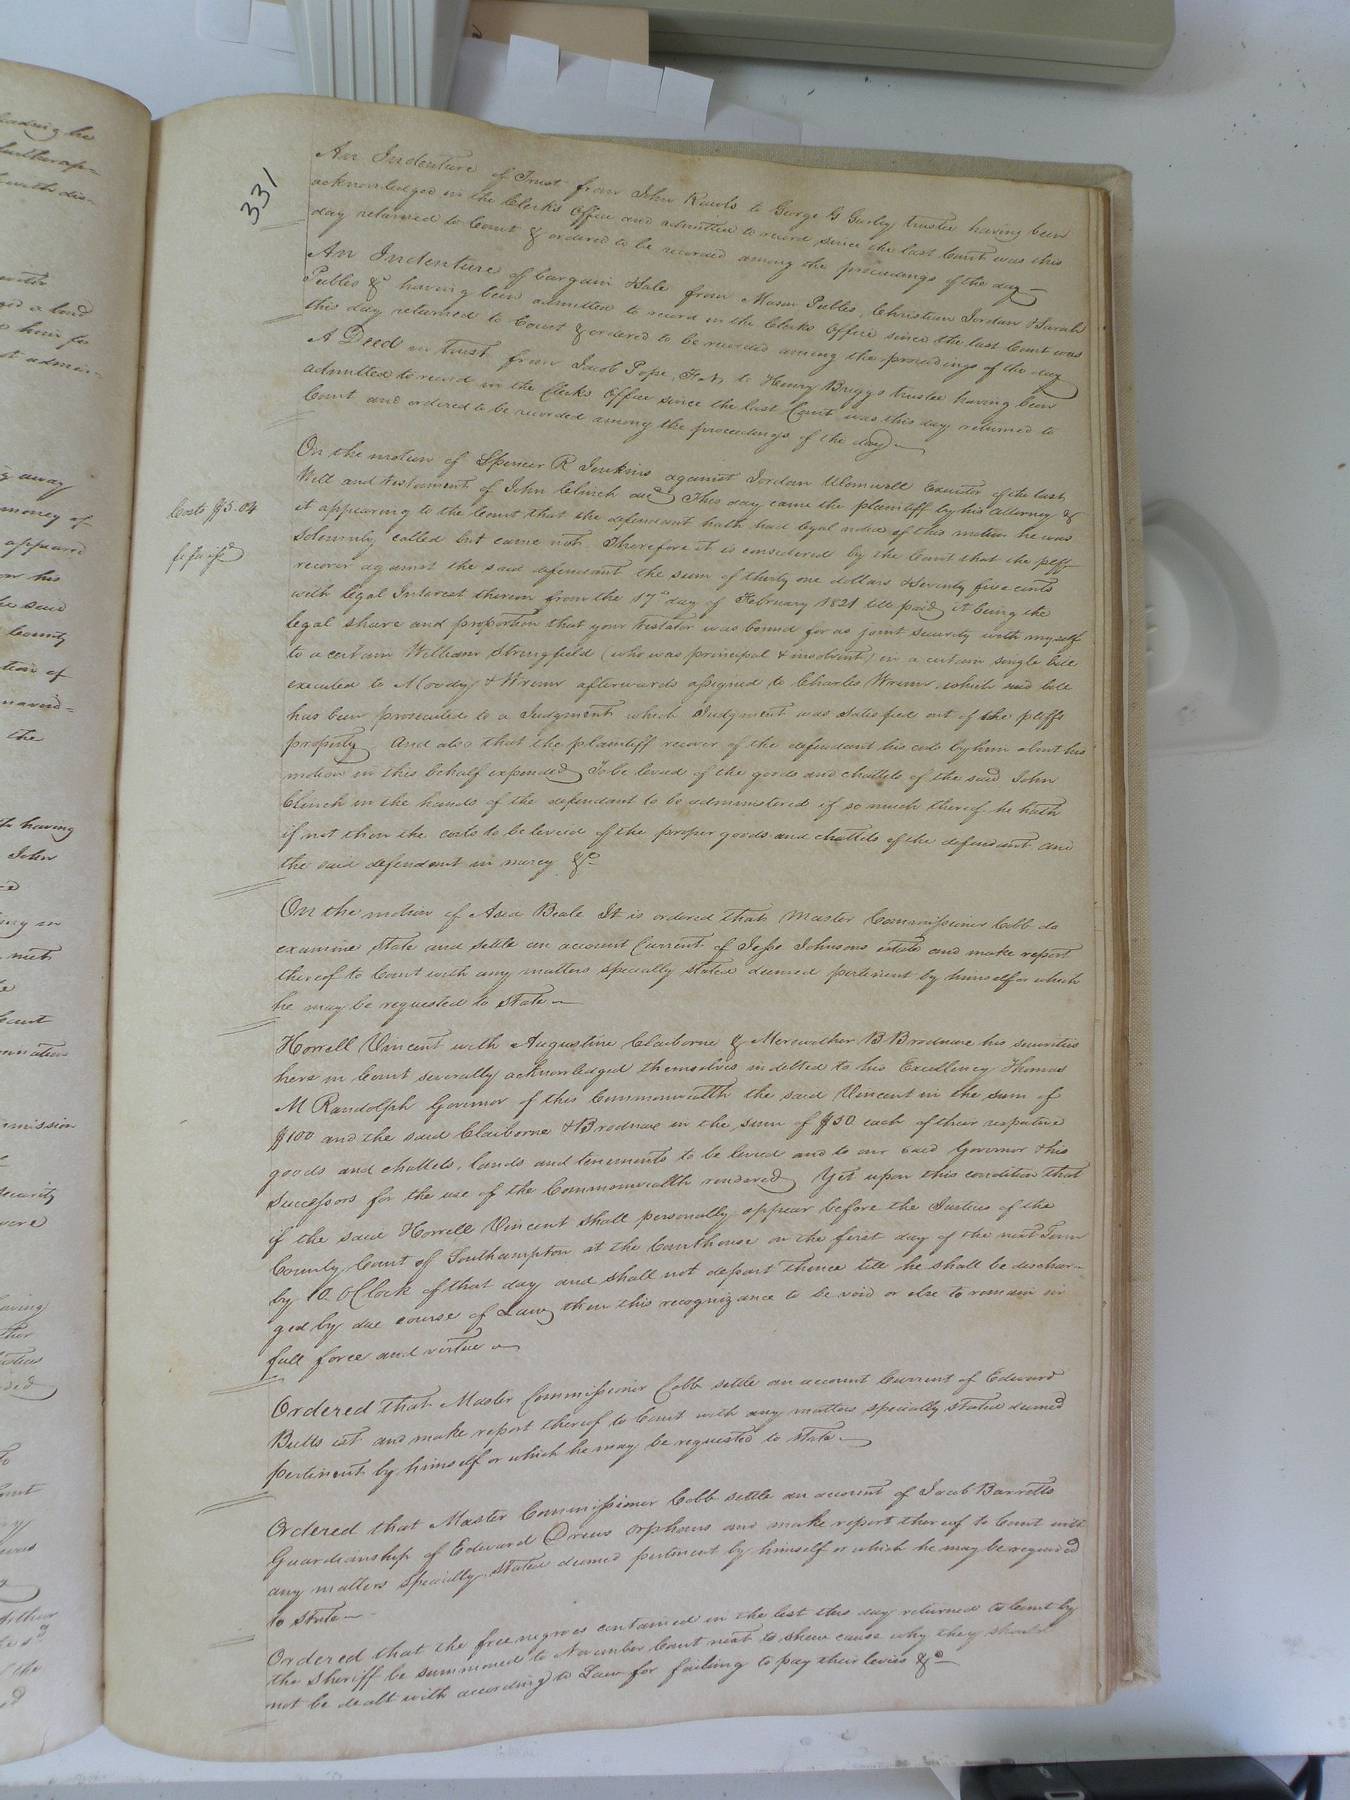 331
An Indenture of Trust from John Rawls to George G Gurley trustee having been
acknowledged in the Clerks Office and admitted to record since the last Court was this
day returned to Court & ordered to be recorded among the proceedings of the day
An Indenture of bargain & Sale from Mason Peebles, Christian Jordan & Sarah
Peebles &c having been admitted to record in the Clerks Office since the last Court was
this day returned to Court & ordered to be recorded among the proceedings of the day
A Deed in trust from Jacob Pope, to Henry Briggs trustee having been
admitted to record in the Clerks Office since the last Court was this day returned to
Court and ordered to be recorded among the proceedings of the day
On the motion of Spencer R Jenkins against Jordan Womwell Executor of the last
Costs $5.04
Will and testament of John Clinch decd This day came the plaintiff by his attorney &
it appearing to the Court that the defendant hath had legal notice of this motion he was
fi fa
solemnly called but came not. Therefore it is considered by the Court that the plff
recover against the said defendant the sum of thirty one dollars & seventy five cents
with legal Interest thereon from the 17th day of February 1821 till paid it being the
legal share and proportion that your testator was bound for as joint security with myself
to a certain William Stringfield (who was principal & insolvent) in a certain single bill
executed to Moody & Wrenn afterwards assigned to Charles Wrenn which said bill
has been prosecuted to a Judgment which Judgment was satisfied out of the plffs
property And also that the plaintiff recover of the defendant his costs by him about his
motion in this behalf expended To be levied of the goods and chattels of the said John
Clinch in the hands of the defendant to be administered if so much thereof he hath
if not then the costs to be levied of the proper goods and chattels of the defendant and
the said defendant in mercy &c
On the motion of Asa Beale It is ordered that Master Commissioner Cobb do
examine State and settle an account Current of Jesse Johnsons estate and make report
thereof to Court with any matters specially stated deemed pertinent by himself or which
he may be requested to state
Horrell Vincent with Augustine Claiborne & Merewether B Brodnax his securities
here in Court severally acknowledged themselves indebted to his Excellency Thomas
M Randolph Governor of this Commonwealth the said Vincent in the sum of
$100 and the said Claiborne & Brodnax in the sum of $50 each of their respective
goods and chattels, lands and tenements to be levied and to our said Governor & his
Successors for the use of the Commonwealth rendered Yet upon this condition that
if the said Horrell Vincent shall personally appear before the Justices of the
County Court of Southampton at the Courthouse on the first day of the next Term
by 10 O Clock of that day and shall not depart thence till he shall be dischar-
ged by due course of Law then this recognizance to be void or else to remain in
full force and virtue
Ordered that Master Commissioner Cobb settle an account Current of Edward
Butts est and make report thereof to Court with any matters specially stated deemed
pertinent by himself or which he may be requested to state
Ordered that Master Commissioner Cobb settle an account of Jacob Barretts
Guardianship of Edward Drews orphans and make report thereof to Court with
any matters specially stated deemed pertinent by himself or which he may be required
to state
Ordered that the free negroes contained in the list this day returned to Court by
the Sheriff be summoned to November Court next to shew cause why they should
not be dealt with according to Law for failing to pay their levies &c